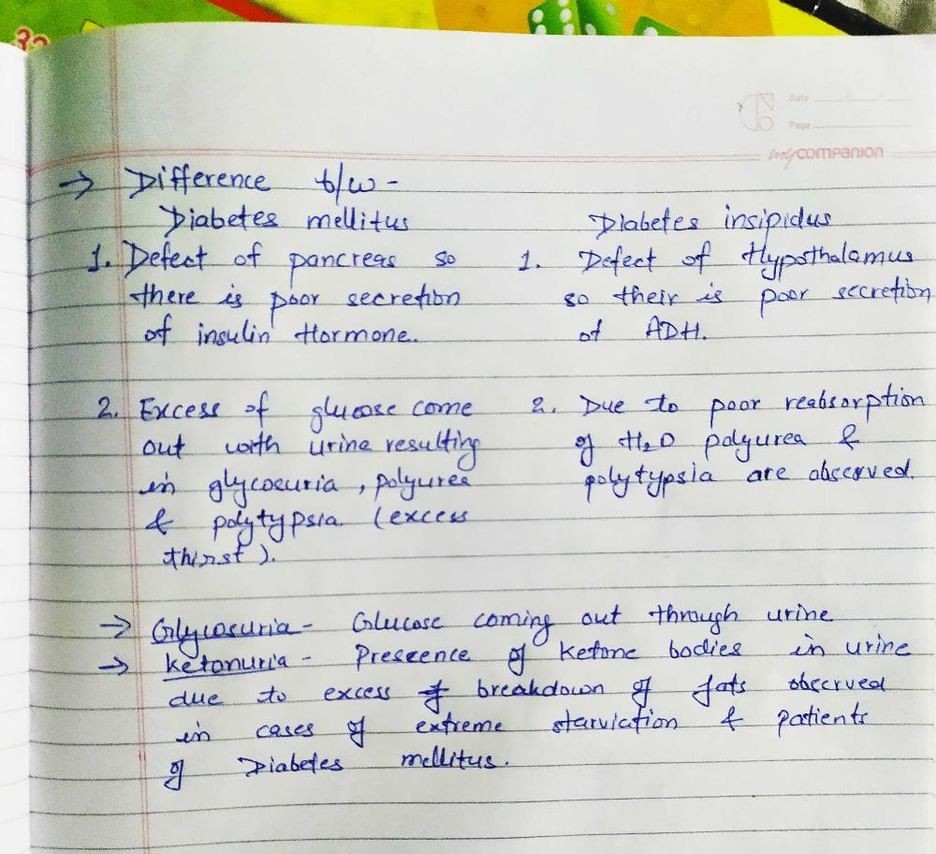 32
Date
Page
my companion
→ Difference b/w -
Diabetes mellitus Diabetes insipidus
1. Defect of pancreas so 1. Defect of Hypothalamus
there is poor secretion so their is poor secretion
of insulin Hormone. of ADH.
2. Excess of glucose come 2. Due to poor reabsorption
out with urine resulting of H2O polyurea &
in glycosuria, polyurea polytypsia are observed.
& polytypsia (excess
thirst).
→ Glycosuria - Glucose coming out through urine
→ Ketonuria - Prescence of Ketone bodies in urine
due to excess of breakdown of fats observed
in cases of extreme starvication & patients
of Diabetes mellitus.